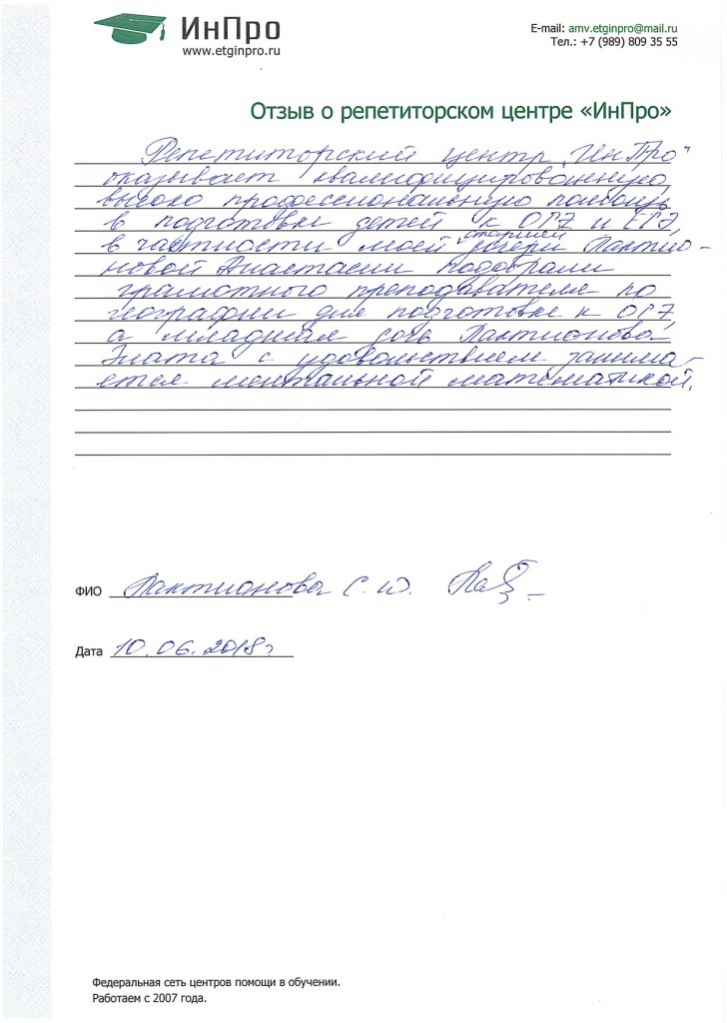 ИнПро
www.etginpro.ru
E-mail: amv.etginpro@mail.ru
Тел.: +7 (989) 809 35 55
Отзыв о репетиторском центре «ИнПро»
Репетиторский центр „ИнПро"
оказывает квалифицированную,
высоко профессиональную помощь
в подготовке детей к ОГЭ и ЕГЭ,
старшей
в частности моей дочери Пактио-
новой Анастасии подобрали
грамотного преподавателя по
географии для подготовке к ОГЭ,
а младшая дочь Пактионова
Злата с удовольствием занима-
ется ментальной математикой.
ФИО Пактионова С. Ю.
Дата 10.06.2018г
Федеральная сеть центров помощи в обучении.
Работаем с 2007 года.